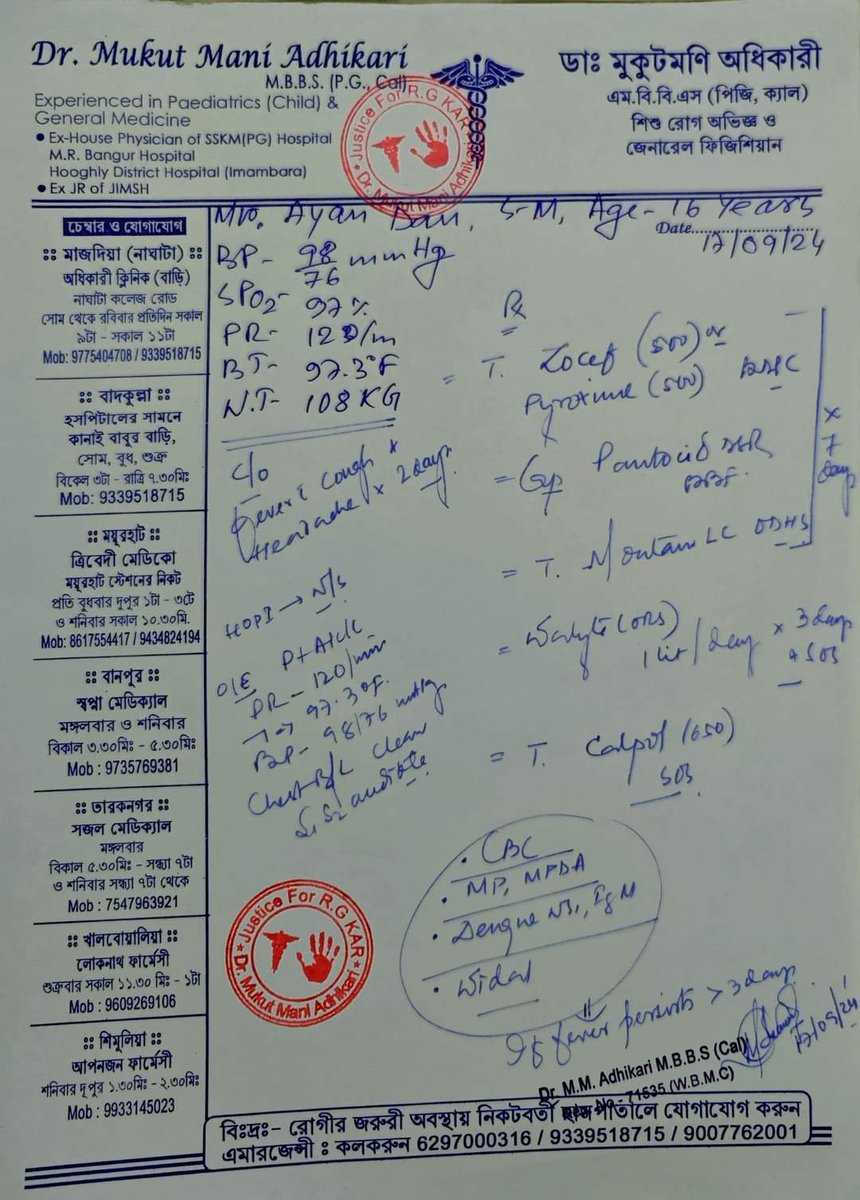 Dr. Mukut Mani Adhikari
M.B.B.S. (P.G., Cal)
Experienced in Paediatrics (Child) &
General Medicine
• Ex-House Physician of SSKM(PG) Hospital
M.R. Bangur Hospital
Hooghly District Hospital (Imambara)
• Ex JR of JIMSH
Justice For R.G KAR
Dr. Mukut Mani Adhikari
ডাঃ মুকুটমণি অধিকারী
এম.বি.বি.এস (পিজি, ক্যাল)
শিশু রোগ অভিজ্ঞ ও
জেনারেল ফিজিশিয়ান
চেম্বার ও যোগাযোগ
:: মাজদিয়া (নাঘাটা) ::
অধিকারী ক্লিনিক (বাড়ি)
নাঘাটা কলেজ রোড
সোম থেকে রবিবার প্রতিদিন সকাল
৯টা - সকাল ১১টা
Mob: 9775404708 / 9339518715
:: বাদকুল্লা ::
হসপিটালের সামনে
কানাই বাবুর বাড়ি,
সোম, বুধ, শুক্র
বিকেল ৩টা - রাত্রি ৭.৩০মিঃ
Mob: 9339518715
:: ময়ূরহাট ::
ত্রিবেদী মেডিকো
ময়ূরহাট স্টেশনের নিকট
প্রতি বুধবার দুপুর ১টা - ৩টে
ও শনিবার সকাল ১০.৩০মি.
Mob: 8617554417 / 9434824194
:: বানপুর ::
স্বপ্না মেডিক্যাল
মঙ্গলবার ও শনিবার
বিকাল ৩.৩০মিঃ - ৫.৩০মিঃ
Mob : 9735769381
:: তারকনগর ::
সজল মেডিক্যাল
মঙ্গলবার
বিকাল ৫.৩০মিঃ - সন্ধ্যা ৭টা
ও শনিবার সন্ধ্যা ৭টা থেকে
Mob : 7547963921
:: খালবোয়ালিয়া ::
লোকনাথ ফার্মেসী
শুক্রবার সকাল ১১.৩০ মিঃ - ১টা
Mob : 9609269106
:: শিমুলিয়া ::
আপনজন ফার্মেসী
শনিবার দুপুর ১.৩০মিঃ - ২.৩০মিঃ
Mob : 9933145023
Ayan S-M, Age - 16 Years
Date 17/09/24
BP- 98/76 mmHg
SPO2- 97%
PR- 120/m
BT- 97.3°F
W.T- 108 KG
C/o
Fever c cough x
Headache x 2 days
HOPI → N/S
O/E
PR - 120/min
T → 97.3°F.
BP - 98/76 mmHg
Chest B/L clear
S1 S2 audible
Rx
= T. Zocef (500) or
Pyroxime (500)
= Cap Pantocid DSR
x 7 days
= T. Montair LC ODHS
= Walyte (ORS)
1 lit / day x 3 days
+ SOS
= T. Calpol (650)
SOS
• CBC
• MP, MPDA
• Dengue NS1, IgM
• Widal
If fever persists > 3 days
17/09/24
Justice For R.G KAR
Dr. Mukut Mani Adhikari
Dr. M.M. Adhikari M.B.B.S (Cal)
No - 71535 (W.B.M.C)
বিঃদ্রঃ- রোগীর জরুরী অবস্থায় নিকটবর্তী হাসপাতালে যোগাযোগ করুন
এমারজেন্সী : কলকরুন 6297000316 / 9339518715 / 9007762001